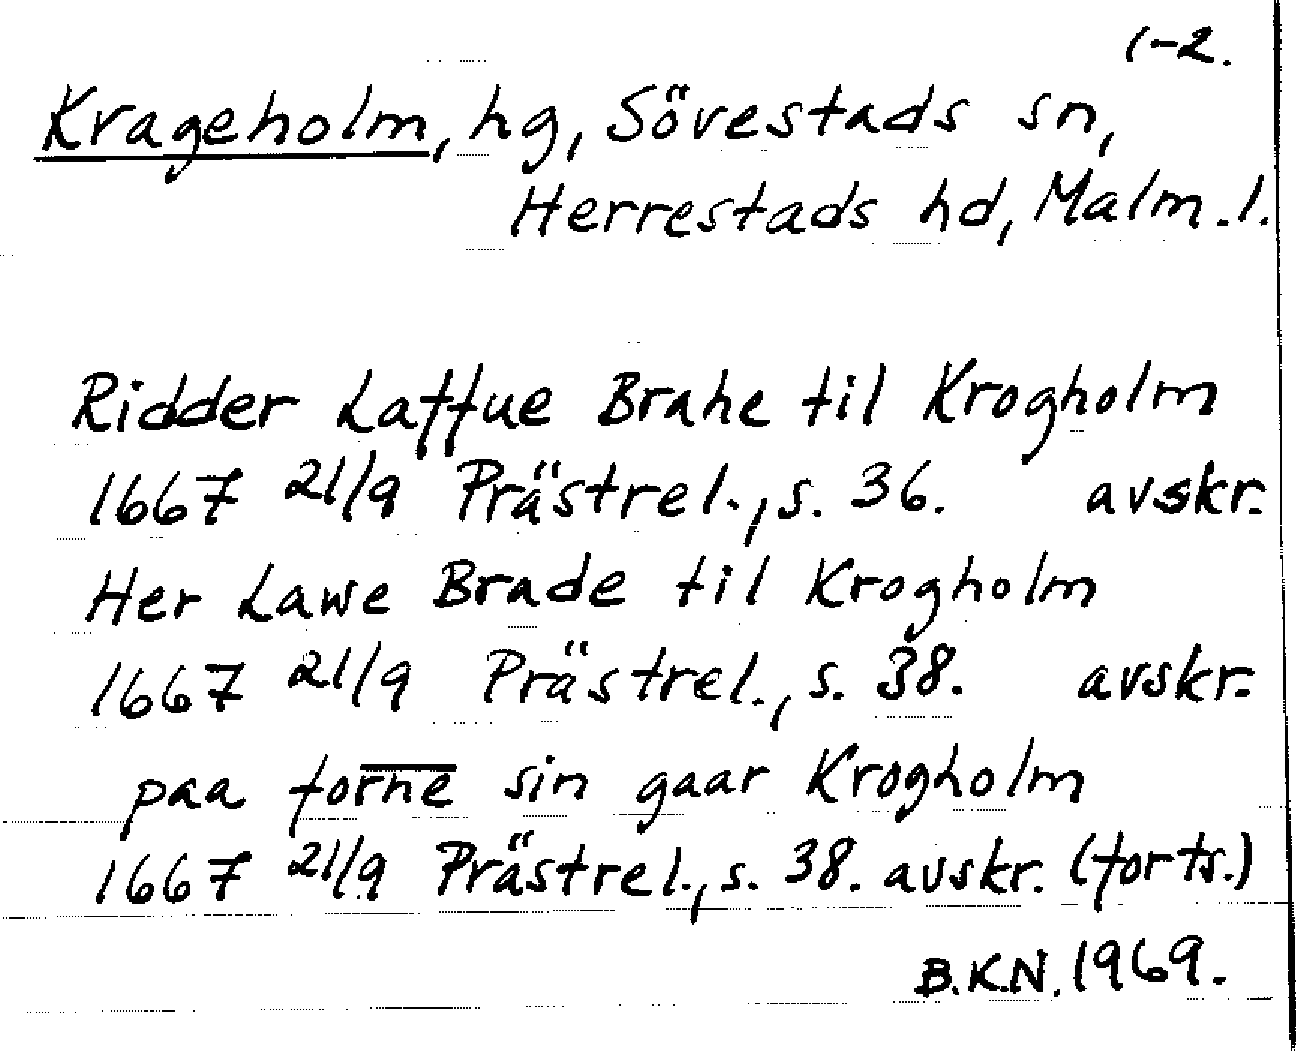 1-2.
Krageholm, hg, Sövestads sn,
Herrestads hd, Malm.l.
Ridder Laffue Brahe til Krogholm
1667 21/9 Prästrel., s. 36. avskr.
Her Lawe Brade til Krogholm
1667 21/9 Prästrel., s. 38. avskr.
paa forne sin gaar Krogholm
1667 21/9 Prästrel., s. 38. avskr. (forts.)
B.K.N. 1969.